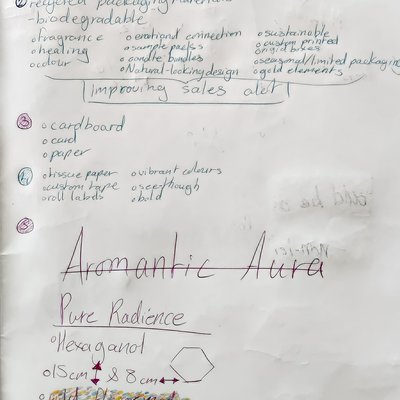 ② recycled packaging materials
-biodegradable
ofragrance oemotional connection osustainable
ohealing osample packs ocustom printed rigid boxes
ocolour ocandle bundles oseasonal/limited packaging
oNatural-looking design ogold elements
Improving sales alot
③ ocardboard
ocard
opaper
④ otissue paper ovibrant colours
ocustom tape osee though
oroll labels obold
⑤
Aromantic Aura
Pure Radience
oHexaganol
o15cm & 8cm